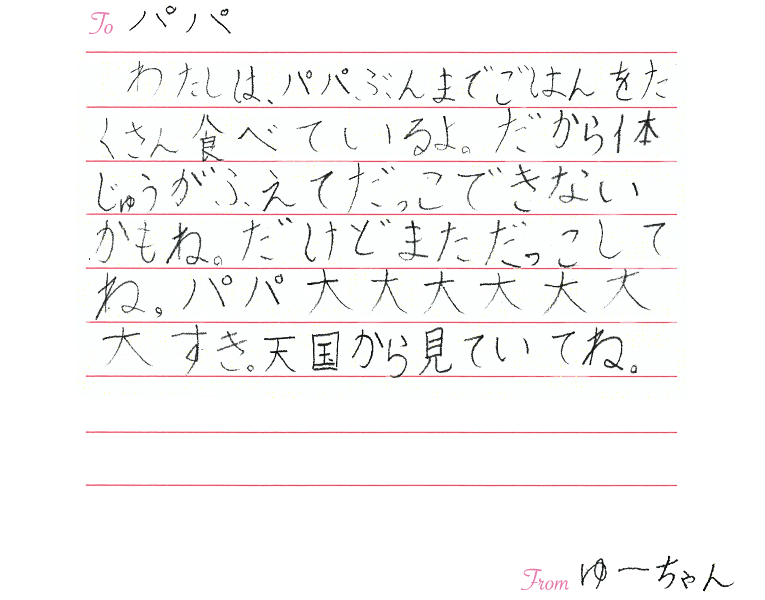 To パパ
わたしは、パパ、ぶんまでごはんをた
くさん食べているよ。だから体
じゅうがふえてだっこできない
かもね。だけどまただっこして
ね。パパ大大大大大大
大すき。天国から見ていてね。
From ゆーちゃん